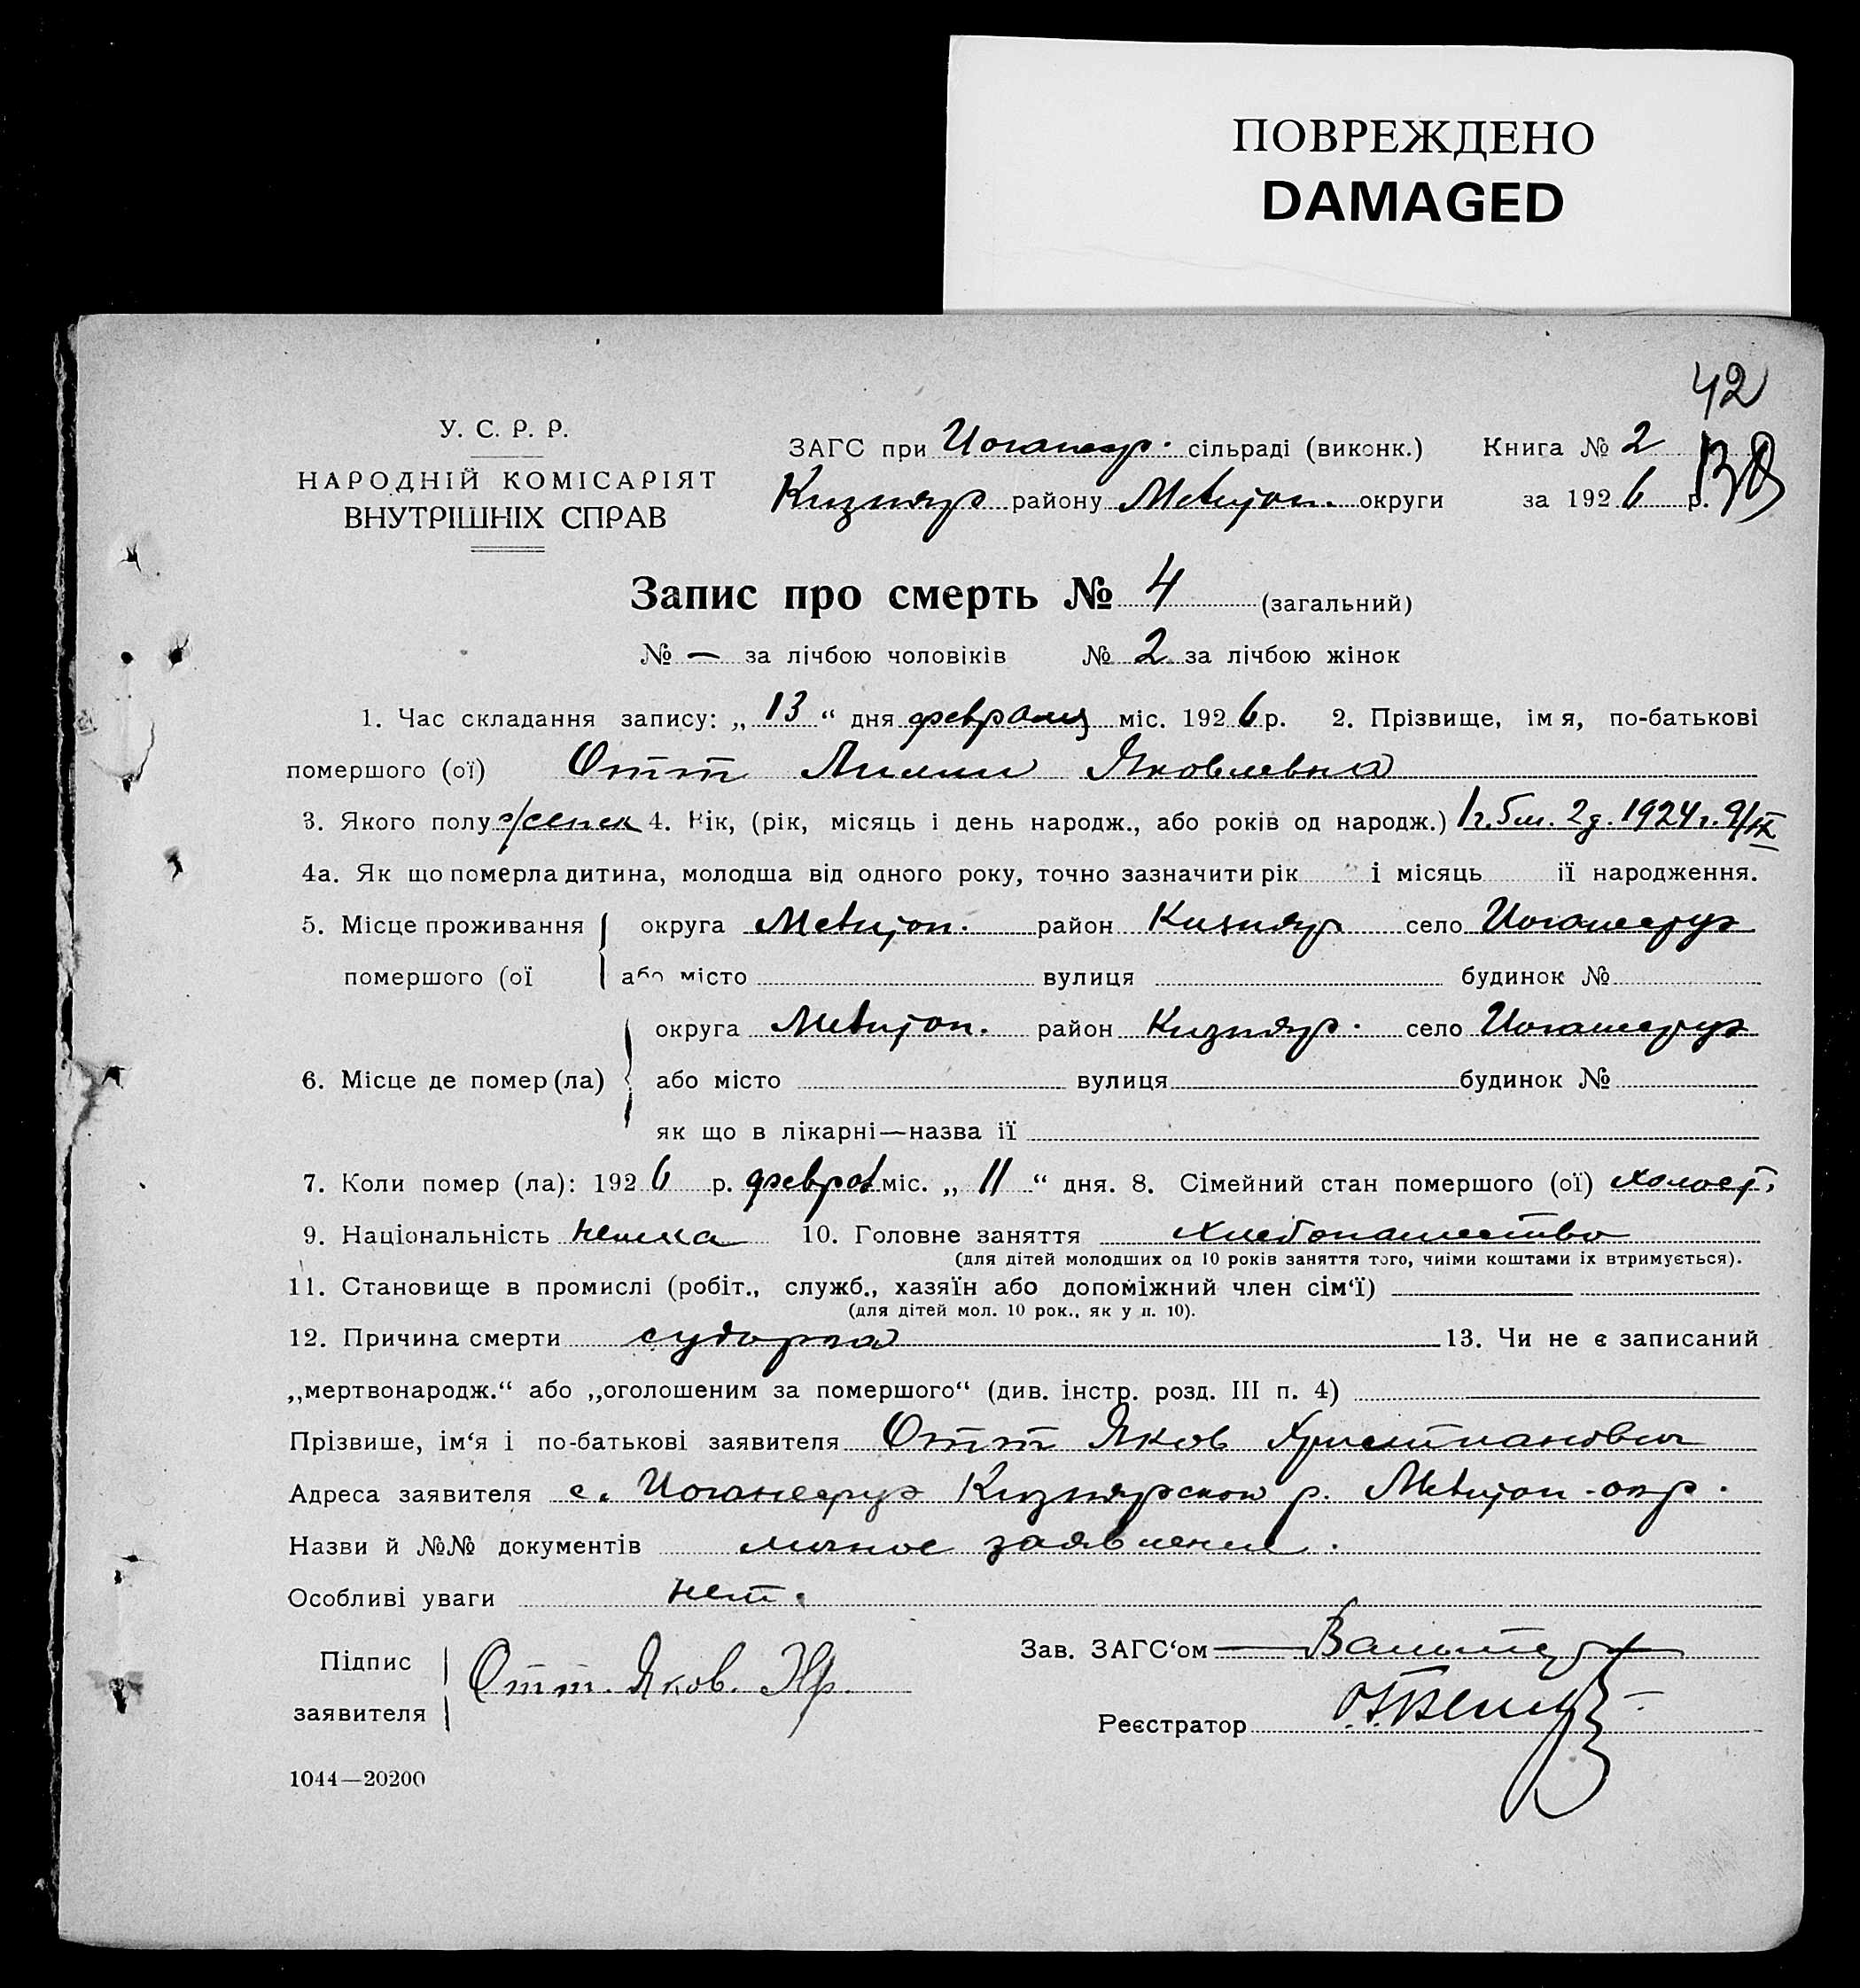 ПОВРЕЖДЕНО
DAMAGED
42
138
У. С. Р. Р.
НАРОДНІЙ КОМІСАРІЯТ
ВНУТРІШНІХ СПРАВ
ЗАГС при сільраді (виконк.) Книга № 2
Кизияр району Метиоп. округи за 1926 р.
Запис про смерть № 4 (загальний)
№ — за лічбою чоловіків № 2 за лічбою жінок
1. Час складання запису: „ 13 “ дня февраля міс. 1926 р. 2. Прізвище, імя, по-батькові
помершого (ої) Отт Лилли Яковлевна
3. Якого полу женск 4. Рік, (рік, місяць і день народж., або років од народж.) 1 г. 5 м. 2 д. 1924 г. 9/IX
4а. Як що померла дитина, молодша від одного року, точно зазначити рік і місяць її народження.
5. Місце проживання округа район Кизияр село Иоганесруэ
помершого (ої або місто вулиця будинок №
округа район Кизияр. село Иоганесруэ
6. Місце де помер (ла) або місто вулиця будинок №
як що в лікарні—назва її
7. Коли помер (ла): 1926 р. феврал міс. „ 11 “ дня. 8. Сімейний стан помершого (ої) холост.
9. Національність немка 10. Головне заняття хлебопашество
(для дітей молодших од 10 років заняття того, чиїми коштами їх втримується).
11. Становище в промислі (робіт., служб., хазяїн або допоміжний член сім‘ї)
(для дітей мол. 10 рок., як у п. 10).
12. Причина смерти судорга 13. Чи не є записаний
„мертвонародж.“ або „оголошеним за помершого“ (див. інстр. розд. III п. 4)
Прізвише, ім‘я і по-батькові заявителя Отт Яков Христианович
Адреса заявителя с. Иоганесруэ Кизиярского р. окр.
Назви й №№ документів личное заявление.
Особливі уваги нет.
Підпис
заявителя
Отт. Яков. Хр.
Зав. ЗАГС‘ом
Реєстратор
1044—20200